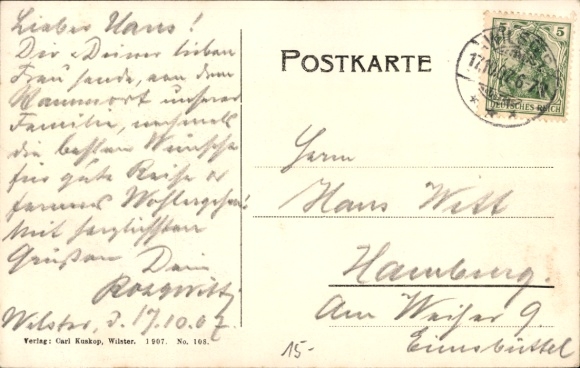 Lieber Hans!
Dir u Deiner lieben
Frau sende, von dem
Stammort unserer
Familie, nochmals
die besten Wünsche
für gute Reise u
ferneres Wohlergehen!
Mit herzlichsten
Grüßen Dein
Wilster, d. 17.10.07.
Verlag: Carl Kuskop, Wilster. 1907. No. 108.
POSTKARTE
5
WILSTER
17.10.07. 6-7N
DEUTSCHES REICH
Herrn
Hans Witt
Hamburg.
Am Weiher 9.
Eimsbüttel
15-